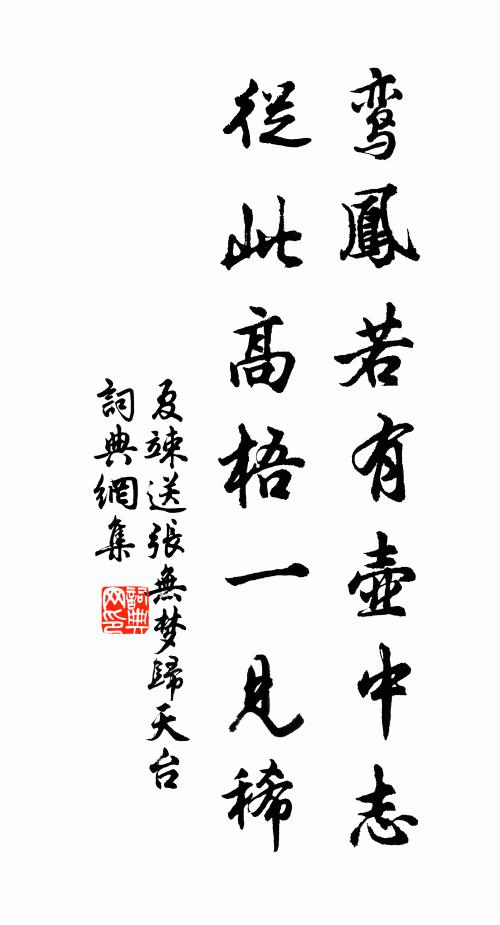 鸾鳳若有壺中志
從此高梧一見稀
夏竦送張無梦歸天台
詞典網集
詞典网印